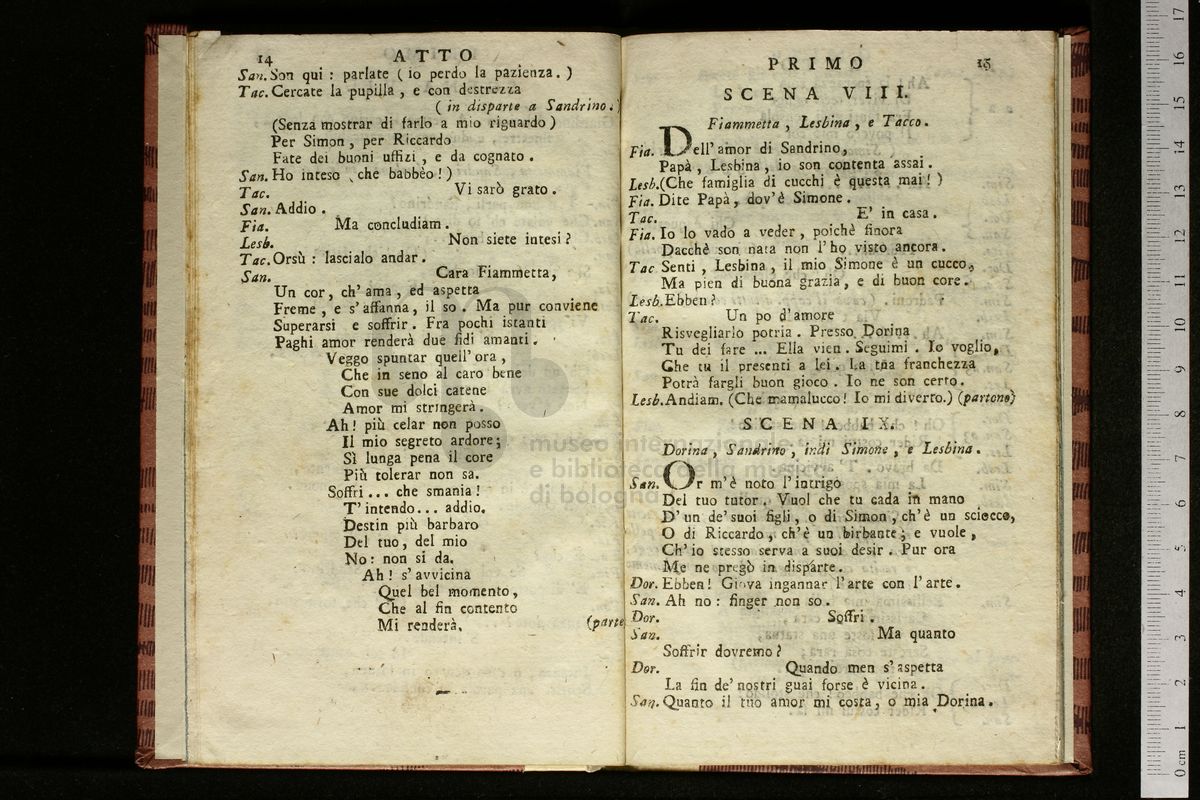 14 ATTO
San. Son qui : parlate ( io perdo la pazienza. )
Tac. Cercate la pupilla , e con destrezza
( in disparte a Sandrino. )
(Senza mostrar di farlo a mio riguardo )
Per Simon, per Riccardo
Fate dei buoni uffizi , e da cognato .
San. Ho inteso ( che babbèo ! )
Tac. Vi sarò grato .
San. Addio .
Fia. Ma concludiam .
Lesb. Non siete intesi ?
Tac. Orsù : lascialo andar .
San. Cara Fiammetta,
Un cor, ch' ama , ed aspetta
Freme , e s' affanna, il so . Ma pur conviene
Superarsi e soffrir . Fra pochi istanti
Paghi amor renderà due fidi amanti .
Veggo spuntar quell' ora ,
Che in seno al caro bene
Con sue dolci catene
Amor mi stringerà .
Ah ! più celar non posso
Il mio segreto ardore ;
Sì lunga pena il core
Più tolerar non sa.
Soffri ... che smania !
T' intendo... addio.
Destin più barbaro
Del tuo, del mio
No : non si da.
Ah ! s' avvicina
Quel bel momento,
Che al fin contento
Mi renderà. (parte
PRIMO 15
SCENA VIII.
Fiammetta , Lesbina , e Tacco .
Fia. Dell' amor di Sandrino,
Papà , Lesbina , io son contenta assai .
Lesb. (Che famiglia di cucchi è questa mai ! )
Fia. Dite Papà, dov' è Simone .
Tac. E' in casa .
Fia. Io lo vado a veder , poichè finora
Dacchè son nata non l' ho visto ancora .
Tac Senti , Lesbina , il mio Simone è un cucco,
Ma pien di buona grazia, e di buon core.
Lesb. Ebben ?
Tac. Un po d' amore
Risvegliarlo potria . Presso Dorina
Tu dei fare ... Ella vien . Seguimi . Io voglio,
Che tu il presenti a lei . La tua franchezza
Potrà fargli buon gioco . Io ne son certo.
Lesb. Andiam. (Che mamalucco ! Io mi diverto.) (partono)
SCENA IX.
Dorina , Sandrino , indi Simone , e Lesbina .
San. Or m' è noto l' intrigo
Del tuo tutor . Vuol che tu cada in mano
D' un de' suoi figli , o di Simon, ch' è un sciocco,
O di Riccardo, ch' è un birbante ; e vuole ,
Ch' io stesso serva a suoi desir . Pur ora
Me ne pregò in disparte .
Dor. Ebben ! Giova ingannar l' arte con l' arte .
San. Ah no : finger non so .
Dor. Soffri .
San. Ma quanto
Soffrir dovremo ?
Dor. Quando men s' aspetta
La fin de' nostri guai forse è vicina .
San. Quanto il tuo amor mi costa, o mia Dorina .
museo internazionale
e biblioteca della musica
di bologna
0 cm 1 2 3 4 5 6 7 8 9 10 11 12 13 14 15 16 17